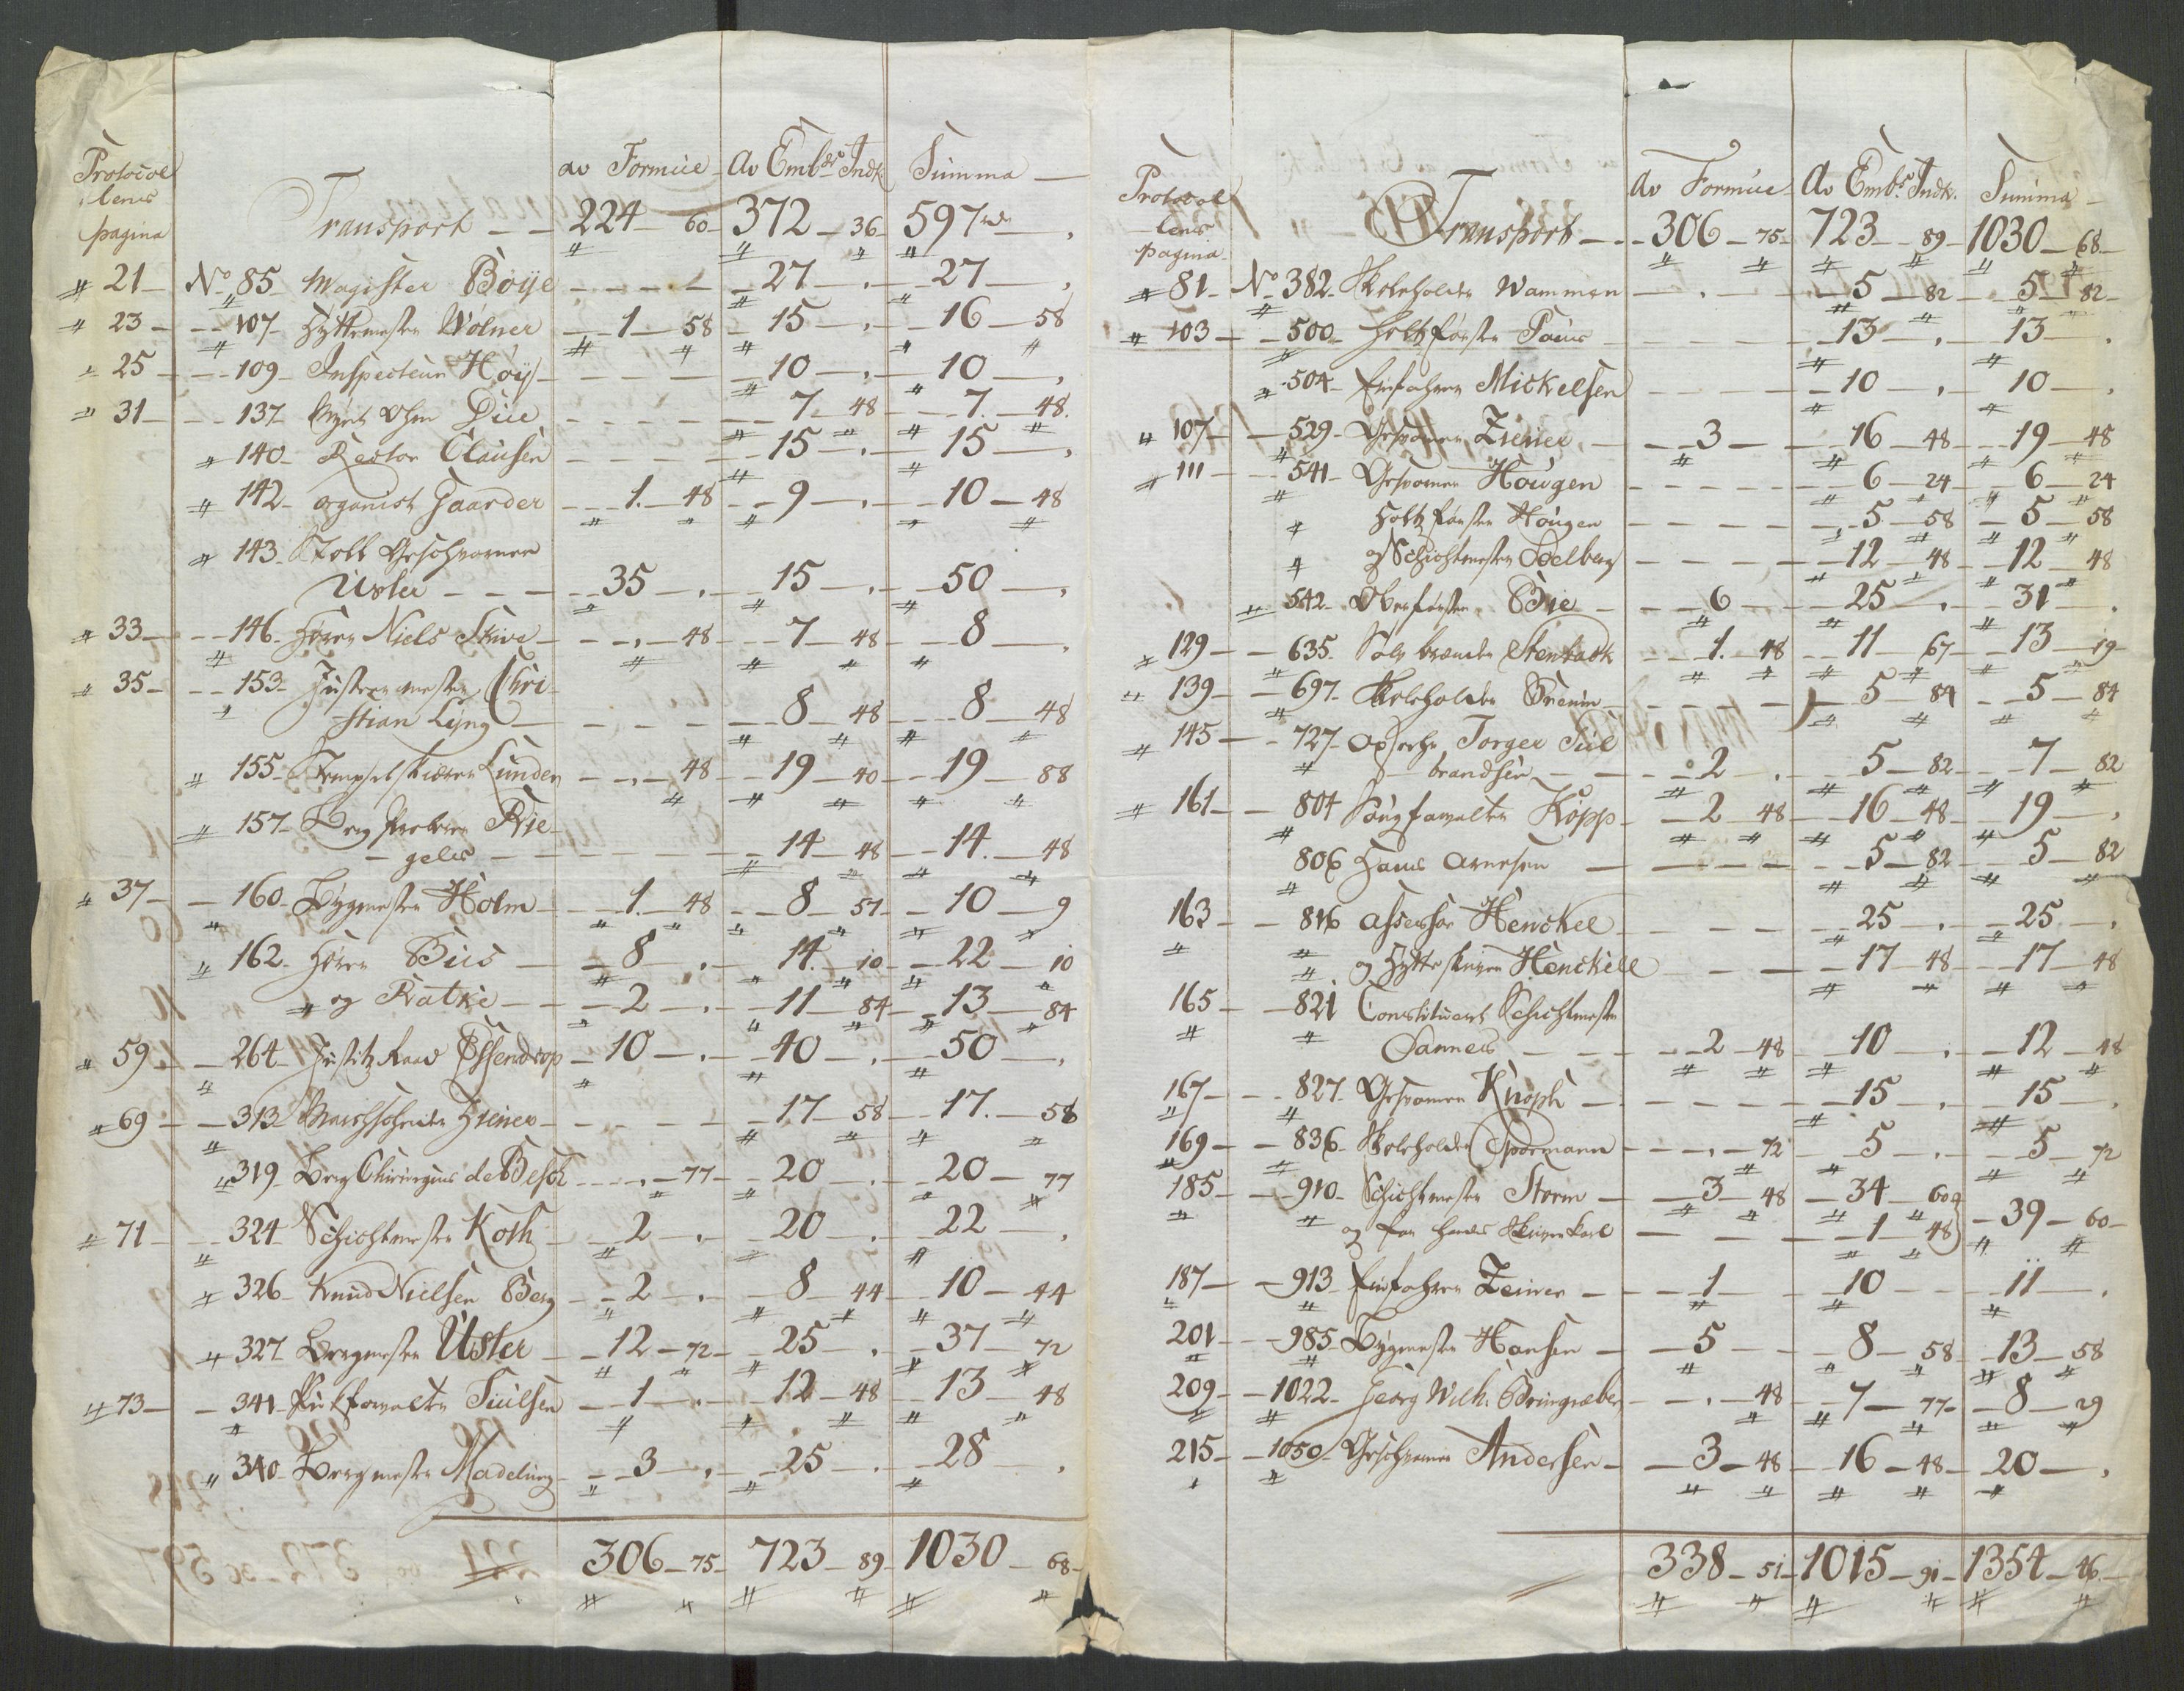 Protocol
lens
pagina
av Formue Av Emb:s Indk: Summa
Transport 224 60 372 36 597 rd
21 No 85 Magister Böÿe 27 27
23 107 Hÿttemester Wolner 1 58 15 16 58
25 109 Inspecteur Höÿ 10 10
31 137 Mÿnt Due 7 48 7 48
140 Rector Clausen 15 15
142 organist Gaarder 1 48 9 10 48
143 Stoll Geschworner
Uster 35 15 50
33 146 Herr Niels Skive 48 7 48 8
35 153 Justeermester Chri
stian Lÿng 8 48 8 48
155 Stempelskiærer Lunden 48 19 40 19 88
157 Berg Probeer Rie
gels 14 48 14 48
37 160 Bÿgmester Holm 1 48 8 57 10 9
162 Herr Bus 8 14 10 22 10
og Ratke 2 11 84 13 84
59 264 Justitz Raad Essendrop 10 40 50
69 313 Markscheider Ziener 17 58 17 58
319 Berg Chirurgus de Besch 77 20 20 77
71 324 Schichtmester Koth 2 20 22
326 Knud Nielsen Berg 2 8 44 10 44
327 Bergmester Uster 12 72 25 37 72
73 341 Pukforvalter Juulsen 1 12 48 13 48
340 Bergmester Madelung 3 25 28
306 75 723 89 1030 68
Protocol
lens
pagina
Av Formue Av Emb:s Indk: Summa
Transport 306 75 723 89 1030 68
81 No 382 Skoleholder Wammen 5 82 5 82
103 500 Holtzförster Paus 13 13
504 Einfahrer Mickelsen 10 10
107 529 Gesvorner Ziener 3 16 48 19 48
111 541 Gesvorner Hougen 6 24 6 24
Holtzförster Hougen 5 58 5 58
og Schichtmester Soelberg 12 48 12 48
542 Oberförster Bie 6 25 31
129 635 Sölv brænder Stenback 1 48 11 67 13 19
139 697 Skoleholder 5 84 5 84
145 727 Opseeher Torger Gul
brandsen 2 5 82 7 82
161 804 Saugforvalter Kopp 2 48 16 48 19
806 Hans Arnesen 5 82 5 82
163 816 assessor Henckel 25 25
og Hÿtteskriver Henckell 17 48 17 48
165 821 Constitueret Schichtmester
Sannes 2 48 10 12 48
167 827 Gesvorner Knoph 15 15
169 836 Skoleholder Spormann 72 5 5 72
185 910 Schichtmester Storm 3 48 34 60
og for hands Skriverkarl 1 48 39 60
187 913 Einfahrer Zeiner 1 10 11
201 985 Bÿgmester Hansen 5 8 58 13 58
209 1022 Georg Wilh: Bringræber 48 7 77 8 29
215 1050 Geschworner Andersen 3 48 16 48 20
338 51 1015 91 1354 46